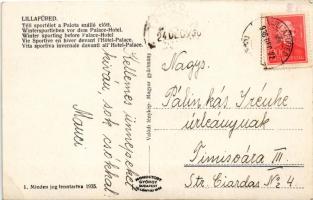 LILLAFÜRED.
Téli sportélet a Palota szálló előtt.
Wintersportleben vor dem Palace-Hotel.
Winter sporting before Palace-Hotel
Vie Sportive en hiver devant l'Hotel-Palace.
Vita sportiva invernale davanti all'Hotel-Palace.
Kellemes ünnepeket
kíván, sok csókkal:
Manci
1. Minden jog fenntartva 1935.
Valódi fénykép Magyar gyártmány
MONOSTORY
GYÖRGY
BUDAPEST
Nagys.
Pálinkás Irénke
úrleánynak
Timisoára III
Str. Ciardas No 4